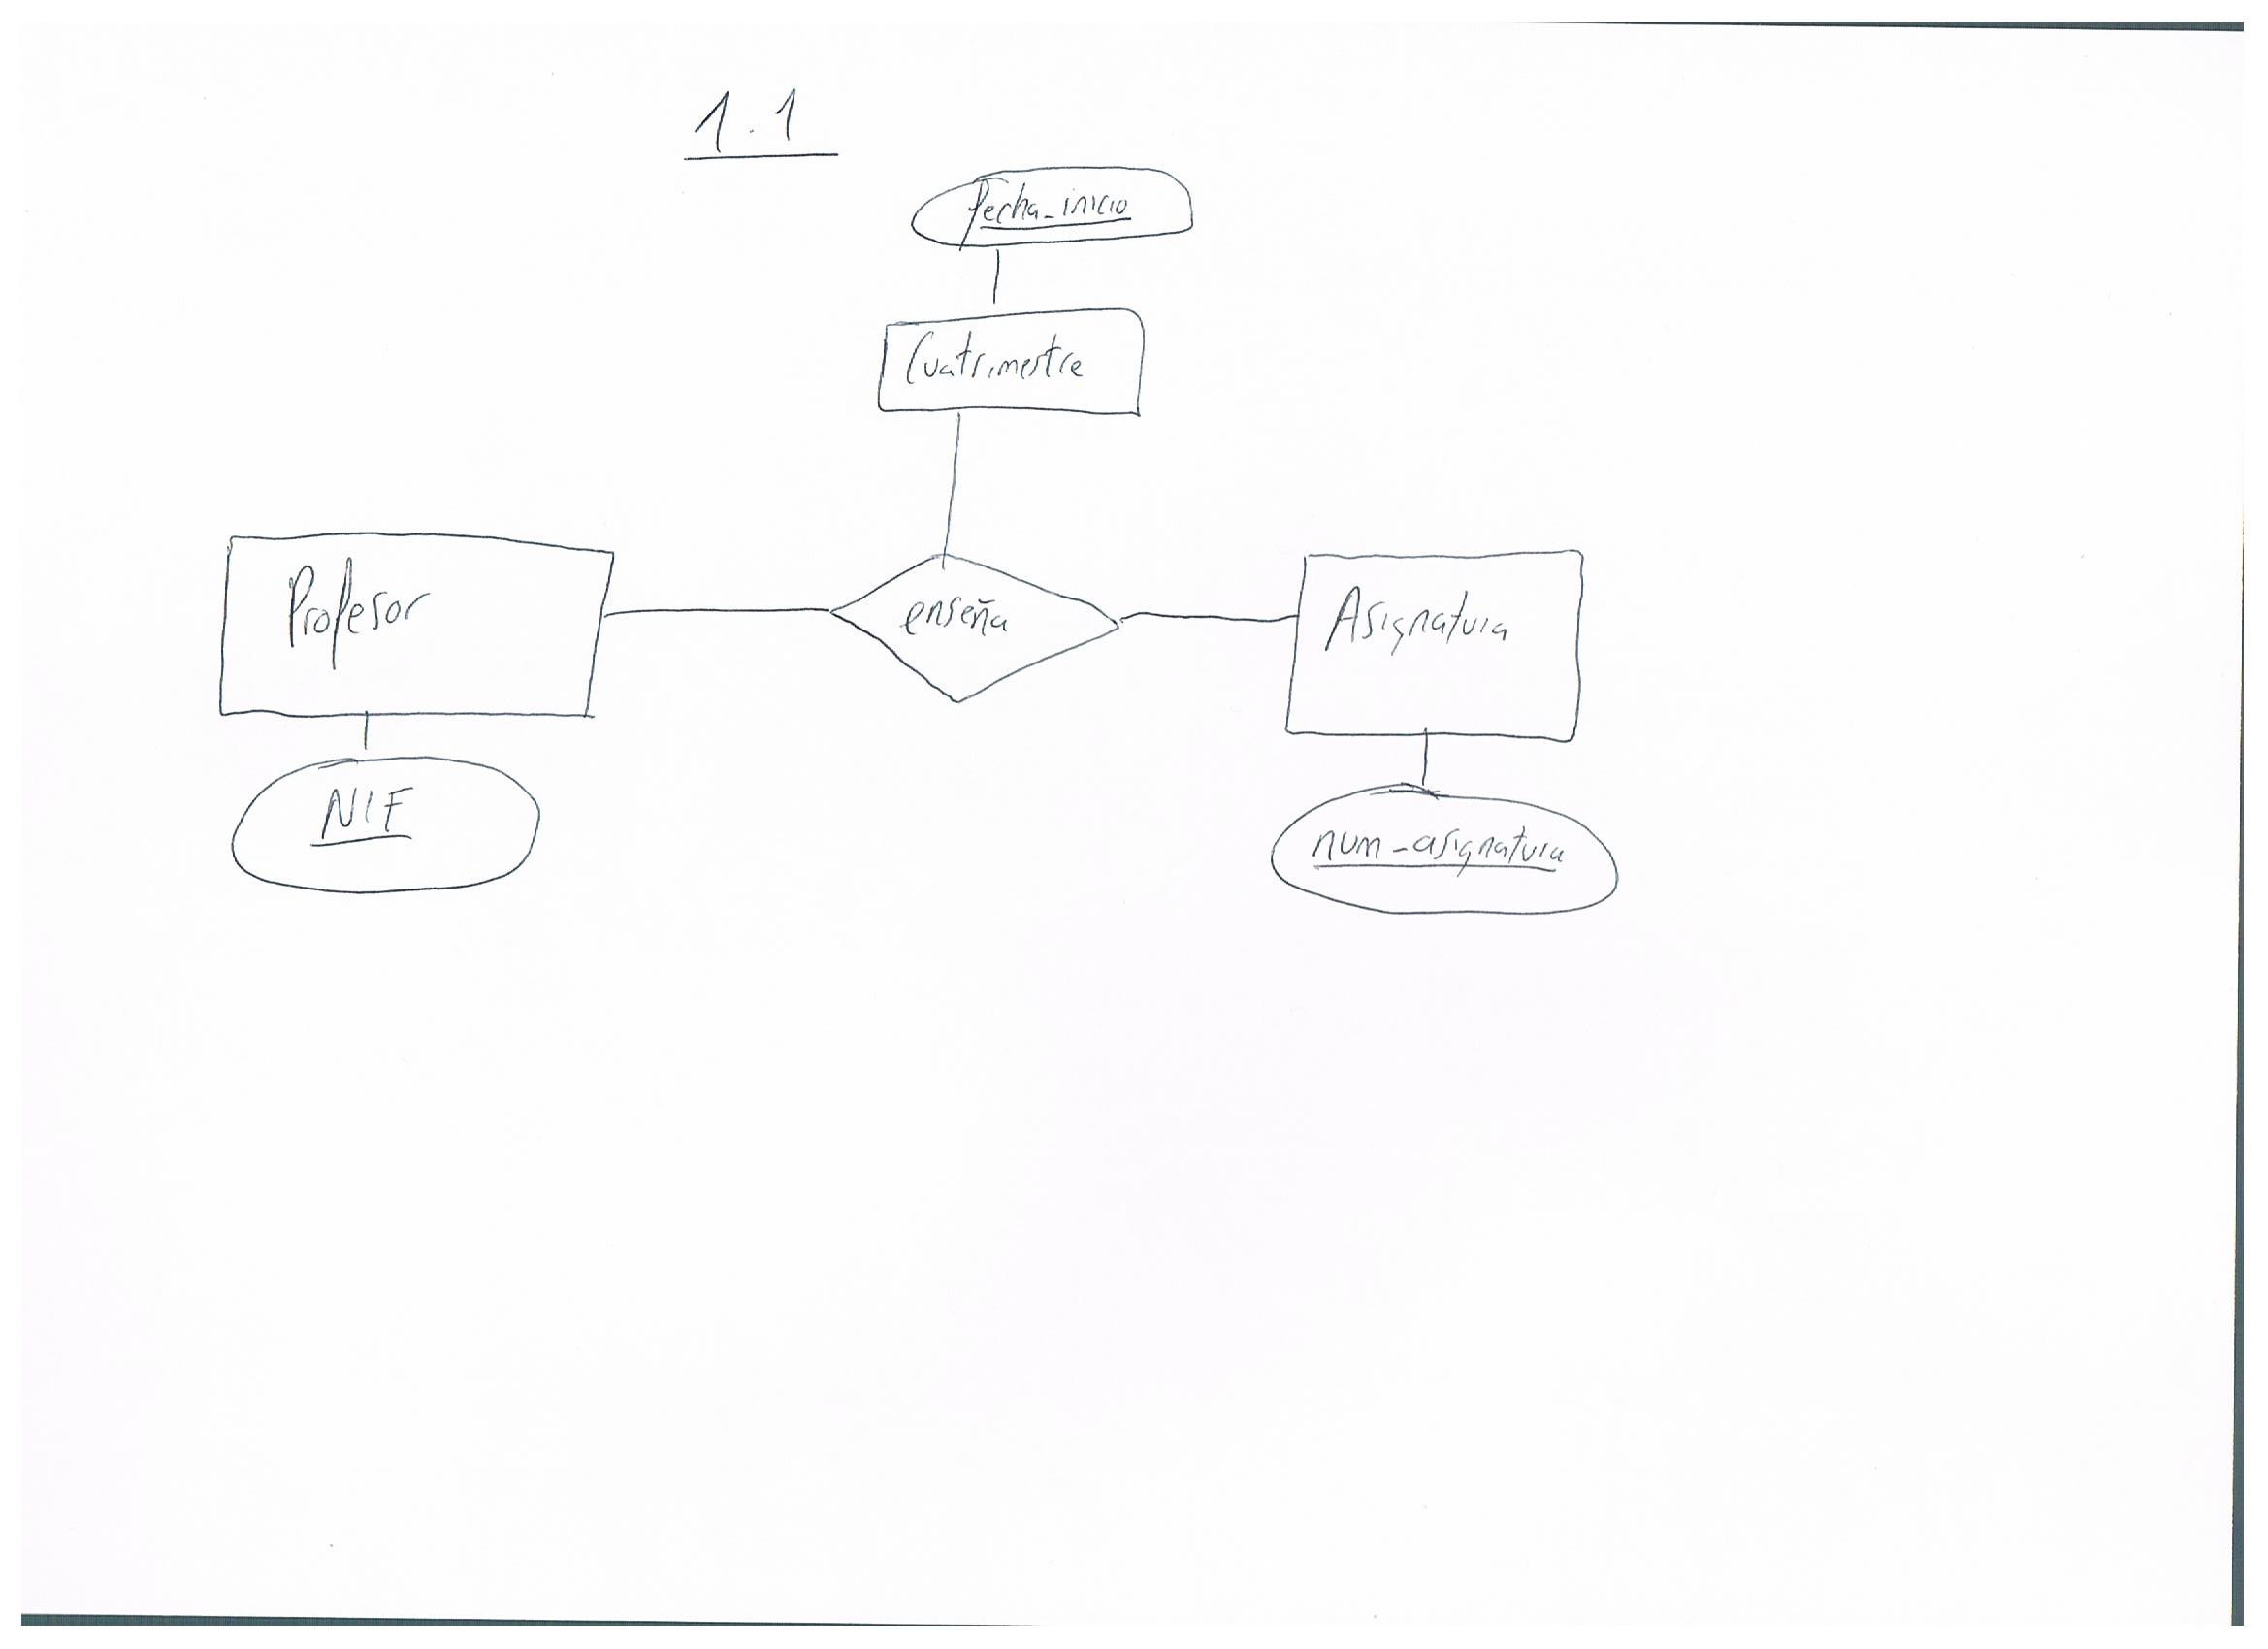 1.1
fecha_inicio
Cuatrimestre
Profesor
enseña
Asignatura
NIF
num_asignatura